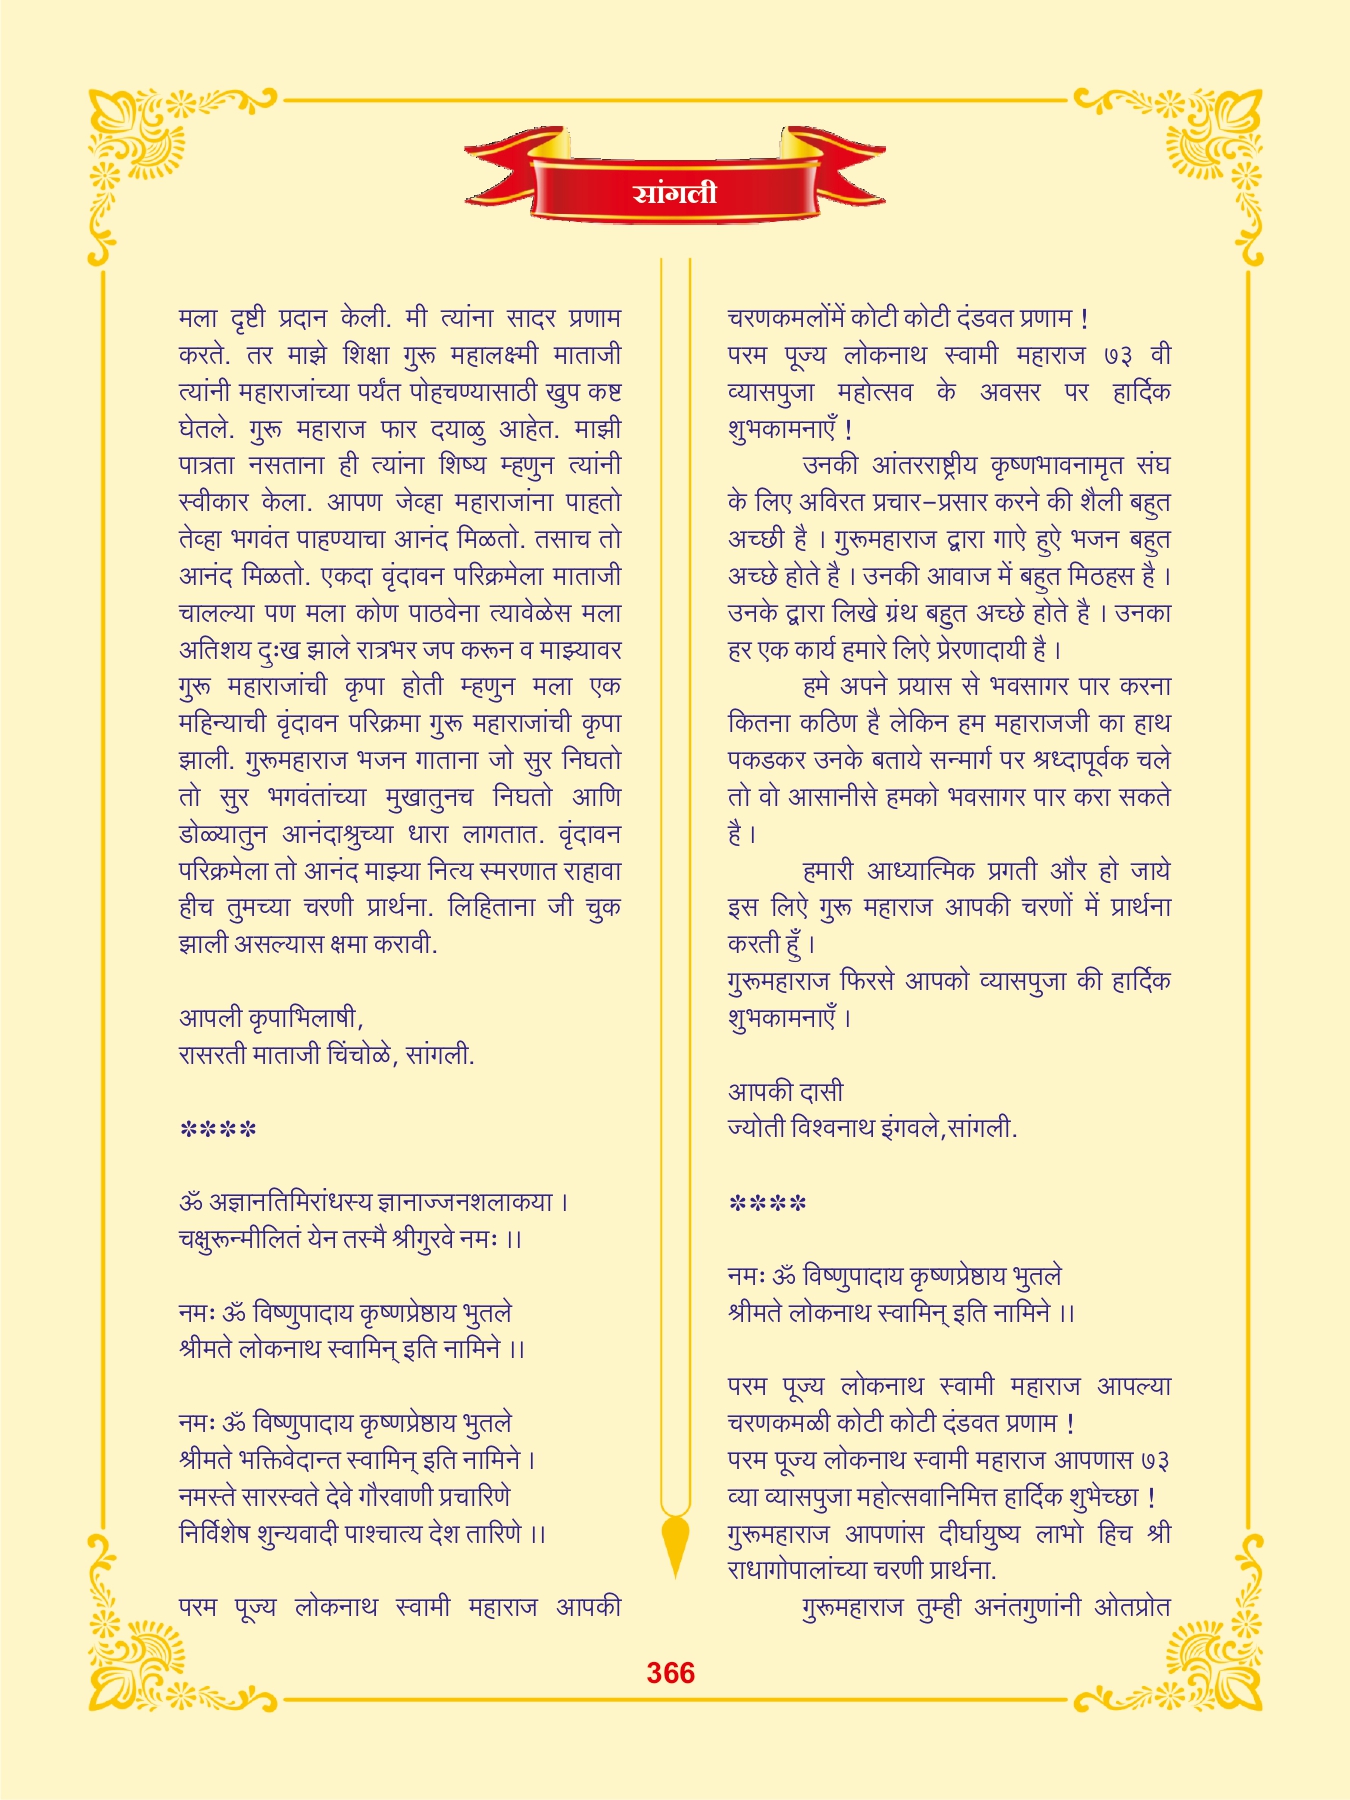 सांगली
मला दृष्टी प्रदान केली. मी त्यांना सादर प्रणाम
करते. तर माझे शिक्षा गुरू महालक्ष्मी माताजी
त्यांनी महाराजांच्या पर्यंत पोहचण्यासाठी खुप कष्ट
घेतले. गुरू महाराज फार दयाळु आहेत. माझी
पात्रता नसताना ही त्यांना शिष्य म्हणुन त्यांनी
स्वीकार केला. आपण जेव्हा महाराजांना पाहतो
तेव्हा भगवंत पाहण्याचा आनंद मिळतो. तसाच तो
आनंद मिळतो. एकदा वृंदावन परिक्रमेला माताजी
चालल्या पण मला कोण पाठवेना त्यावेळेस मला
अतिशय दुःख झाले रात्रभर जप करून व माझ्यावर
गुरू महाराजांची कृपा होती म्हणुन मला एक
महिन्याची वृंदावन परिक्रमा गुरू महाराजांची कृपा
झाली. गुरूमहाराज भजन गाताना जो सुर निघतो
तो सुर भगवंतांच्या मुखातुनच निघतो आणि
डोळ्यातुन आनंदाश्रुच्या धारा लागतात. वृंदावन
परिक्रमेला तो आनंद माझ्या नित्य स्मरणात राहावा
हीच तुमच्या चरणी प्रार्थना. लिहिताना जी चुक
झाली असल्यास क्षमा करावी.
आपली कृपाभिलाषी,
रासरती माताजी चिंचोळे, सांगली.
****
ॐ अज्ञानतिमिरांधस्य ज्ञानाज्जनशलाकया ।
चक्षुरून्मीलितं येन तस्मै श्रीगुरवे नमः ।।
नमः ॐ विष्णुपादाय कृष्णप्रेष्ठाय भुतले
श्रीमते लोकनाथ स्वामिन् इति नामिने ।।
नमः ॐ विष्णुपादाय कृष्णप्रेष्ठाय भुतले
श्रीमते भक्तिवेदान्त स्वामिन् इति नामिने ।
नमस्ते सारस्वते देवे गौरवाणी प्रचारिणे
निर्विशेष शुन्यवादी पाश्चात्य देश तारिणे ।।
परम पूज्य लोकनाथ स्वामी महाराज आपकी
चरणकमलोंमें कोटी कोटी दंडवत प्रणाम !
परम पूज्य लोकनाथ स्वामी महाराज ७३ वी
व्यासपुजा महोत्सव के अवसर पर हार्दिक
शुभकामनाएँ !
उनकी आंतरराष्ट्रीय कृष्णभावनामृत संघ
के लिए अविरत प्रचार-प्रसार करने की शैली बहुत
अच्छी है । गुरूमहाराज द्वारा गाऐ हुऐ भजन बहुत
अच्छे होते है । उनकी आवाज में बहुत मिठहस है ।
उनके द्वारा लिखे ग्रंथ बहुत अच्छे होते है । उनका
हर एक कार्य हमारे लिऐ प्रेरणादायी है ।
हमे अपने प्रयास से भवसागर पार करना
कितना कठिण है लेकिन हम महाराजजी का हाथ
पकडकर उनके बताये सन्मार्ग पर श्रध्दापूर्वक चले
तो वो आसानीसे हमको भवसागर पार करा सकते
है ।
हमारी आध्यात्मिक प्रगती और हो जाये
इस लिऐ गुरू महाराज आपकी चरणों में प्रार्थना
करती हूँ ।
गुरूमहाराज फिरसे आपको व्यासपुजा की हार्दिक
शुभकामनाएँ ।
आपकी दासी
ज्योती विश्वनाथ इंगवले,सांगली.
****
नमः ॐ विष्णुपादाय कृष्णप्रेष्ठाय भुतले
श्रीमते लोकनाथ स्वामिन् इति नामिने ।।
परम पूज्य लोकनाथ स्वामी महाराज आपल्या
चरणकमळी कोटी कोटी दंडवत प्रणाम !
परम पूज्य लोकनाथ स्वामी महाराज आपणास ७३
व्या व्यासपुजा महोत्सवानिमित्त हार्दिक शुभेच्छा !
गुरूमहाराज आपणांस दीर्घायुष्य लाभो हिच श्री
राधागोपालांच्या चरणी प्रार्थना.
गुरूमहाराज तुम्ही अनंतगुणांनी ओतप्रोत
366